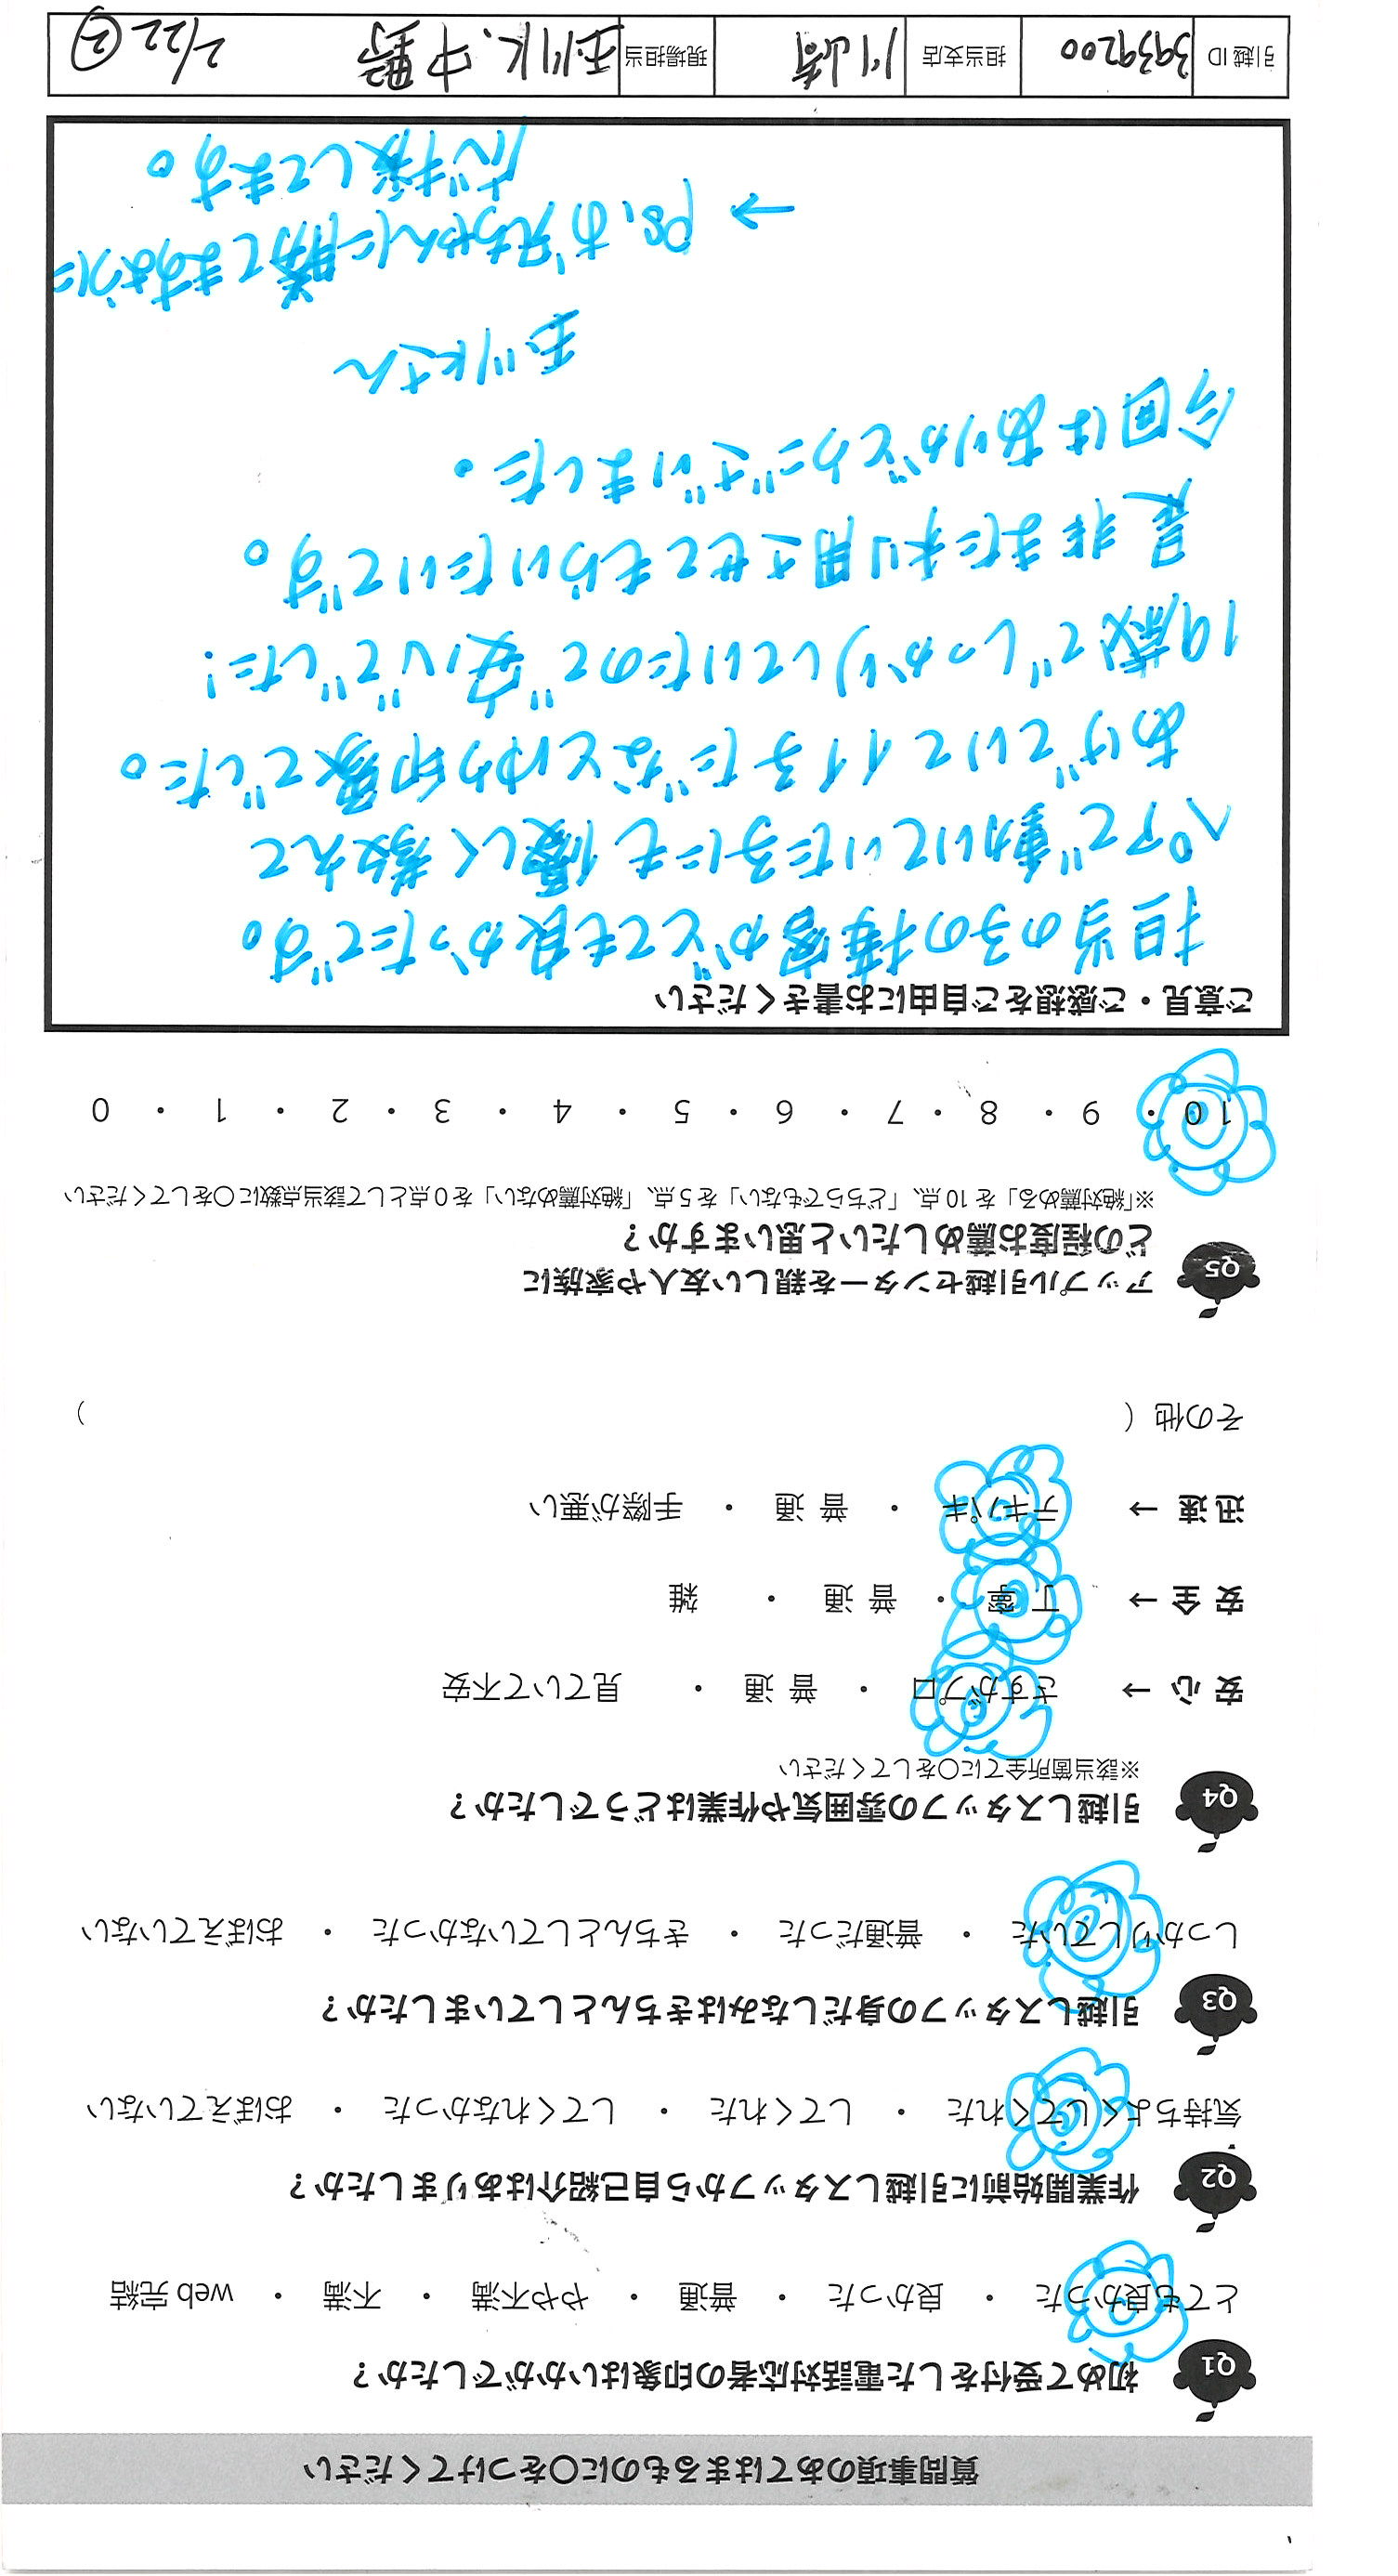 質問事項のあてはまるものに〇をつけてください
Q1 初めて受付をした電話対応者の印象はいかがでしたか？
とても良かった ・ 良かった ・ 普通 ・ やや不満 ・ 不満 ・ web 完結
Q2 作業開始前に引越しスタッフから自己紹介はありましたか？
気持ちよくしてくれた ・ してくれた ・ してくれなかった ・ おぼえていない
Q3 引越しスタッフの身だしなみはきちんとしていましたか？
しっかりしていた ・ 普通だった ・ きちんとしていなかった ・ おぼえていない
Q4 引越しスタッフの雰囲気や作業はどうでしたか？
※該当箇所全てに〇をしてください
安 心 → さすがプロ ・ 普 通 ・ 見ていて不安
安 全 → 丁 寧 ・ 普 通 ・ 雑
迅 速 → テキパキ ・ 普 通 ・ 手際が悪い
その他（ ）
Q5 アップル引越センターを親しい友人や家族に
どの程度お薦めしたいと思いますか？
※「絶対薦める」を 10 点、「どちらでもない」を 5 点、「絶対薦めない」を 0 点として該当点数に〇をしてください
10 ・ 9 ・ 8 ・ 7 ・ 6 ・ 5 ・ 4 ・ 3 ・ 2 ・ 1 ・ 0
ご意見・ご感想をご自由にお書きください
担当の子の接客がとても良かったです。
ペアで動いていた子にも優しく教えて
あげていてイイ子だなとゆう印象でした。
19歳でしっかりしていたので安心でした！
是非また利用させてもらいたいです。
今回はありがとうございました。
玉川さん
→ ps、お兄ちゃんに勝てますように
応援してます。
引越 ID 3939200 担当支店 川崎 現場担当 玉川K、中野 2/22 ②